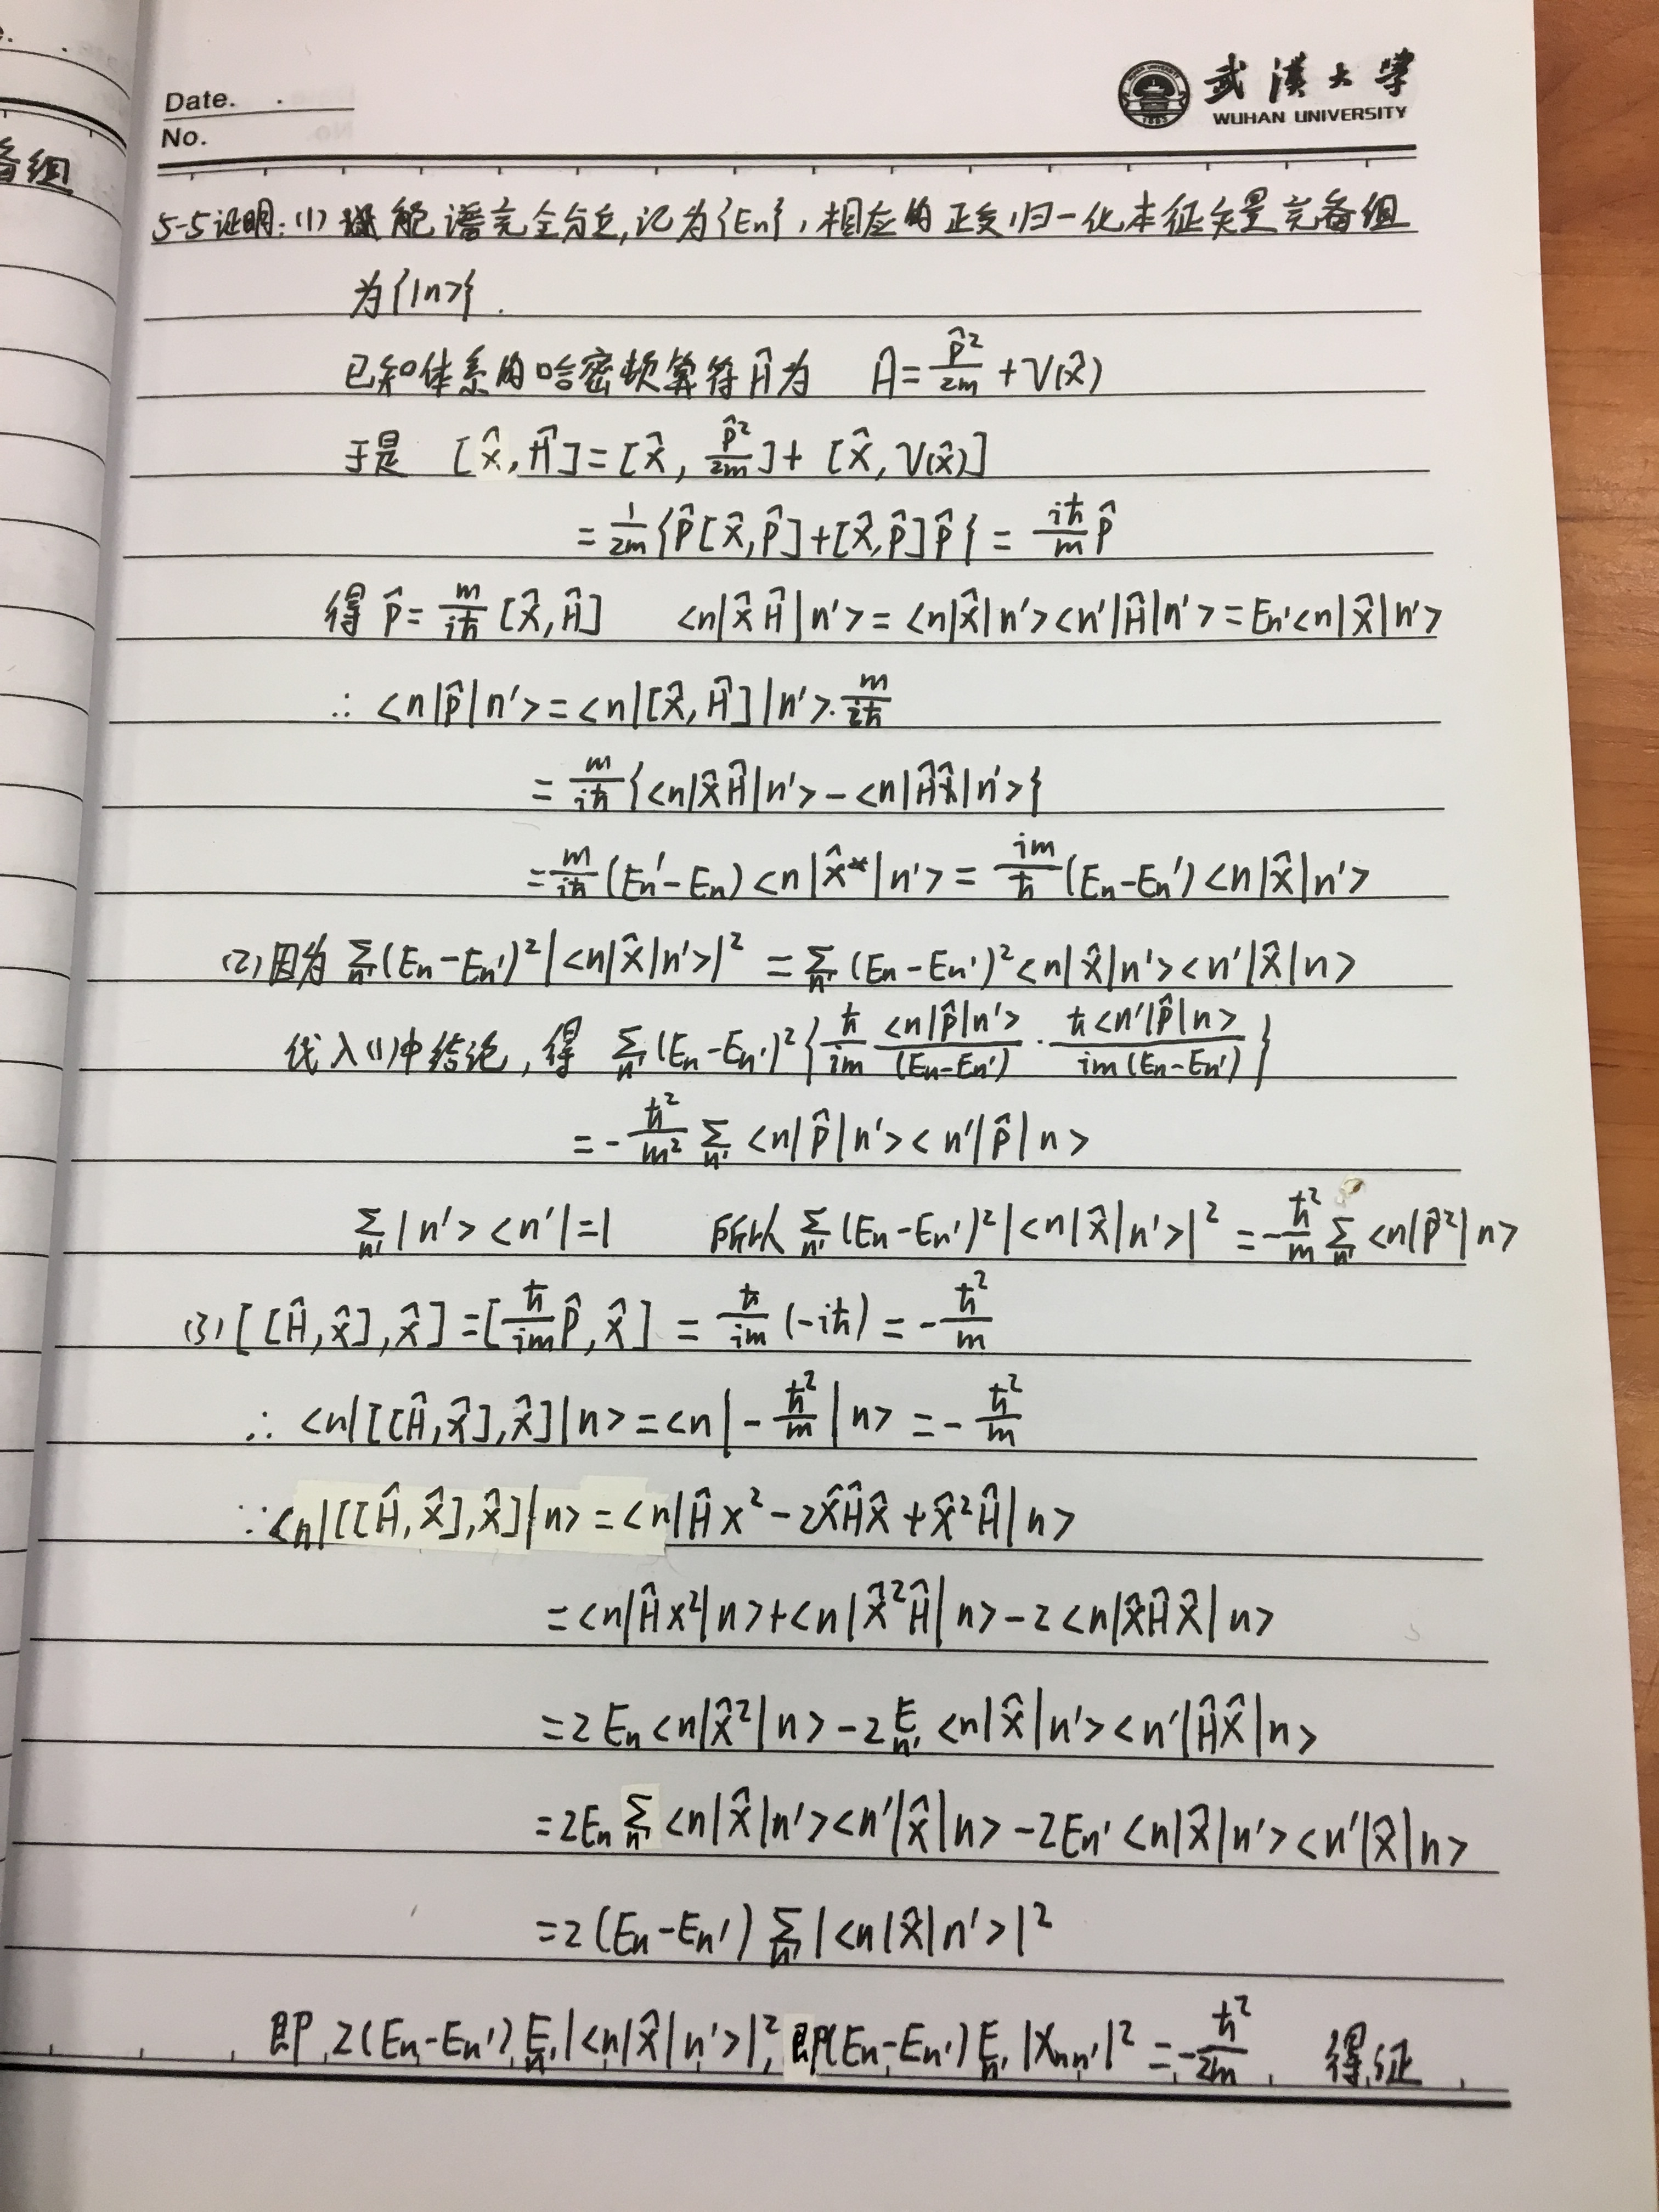 Date. .
No.
武漢大學
WUHAN UNIVERSITY
备组
5-5证明:(1) 设能谱完全分立,记为{En},相应的正交归一化本征矢量完备组
为{|n>}.
已知体系的哈密顿算符Ĥ为 Ĥ=p̂²/2m+V(x̂)
于是 [x̂,Ĥ]=[x̂,p̂²/2m]+[x̂,V(x̂)]
=1/2m{p̂[x̂,p̂]+[x̂,p̂]p̂}=iħ/m p̂
得 p̂=m/iħ[x̂,Ĥ] <n|x̂Ĥ|n'>=<n|x̂|n'><n'|Ĥ|n'>=En'<n|x̂|n'>
∴ <n|p̂|n'>=<n|[x̂,Ĥ]|n'>·m/iħ
=m/iħ{<n|x̂Ĥ|n'>-<n|Ĥx̂|n'>}
=m/iħ(En'-En)<n|x̂*|n'>=im/ħ(En-En')<n|x̂|n'>
(2)因为 Σn'(En-En')²|<n|x̂|n'>|²=Σn'(En-En')²<n|x̂|n'><n'|x̂|n>
代入(1)中结论,得 Σn'(En-En')²{ħ/im <n|p̂|n'>/(En-En')·ħ<n'|p̂|n>/im(En-En')}
=-ħ²/m² Σn' <n|p̂|n'><n'|p̂|n>
Σn'|n'><n'|=1 所以 Σn'(En-En')²|<n|x̂|n'>|²=-ħ²/m Σn' <n|p̂²|n>
(3)[[Ĥ,x̂],x̂]=[ħ/im p̂,x̂]=ħ/im(-iħ)=-ħ²/m
∴ <n|[[Ĥ,x̂],x̂]|n>=<n|-ħ²/m|n>=-ħ²/m
∵<n|[[Ĥ,x̂],x̂]|n>=<n|Ĥx²-2x̂Ĥx̂+x̂²Ĥ|n>
=<n|Ĥx²|n>+<n|x̂²Ĥ|n>-2<n|x̂Ĥx̂|n>
=2En<n|x̂²|n>-2Σn'<n|x̂|n'><n'|Ĥx̂|n>
=2EnΣn'<n|x̂|n'><n'|x̂|n>-2En'<n|x̂|n'><n'|x̂|n>
=2(En-En')Σn'|<n|x̂|n'>|²
即 2(En-En')Σn'|<n|x̂|n'>|², 即(En-En')Σn'|Xnn'|²=-ħ²/2m 得证